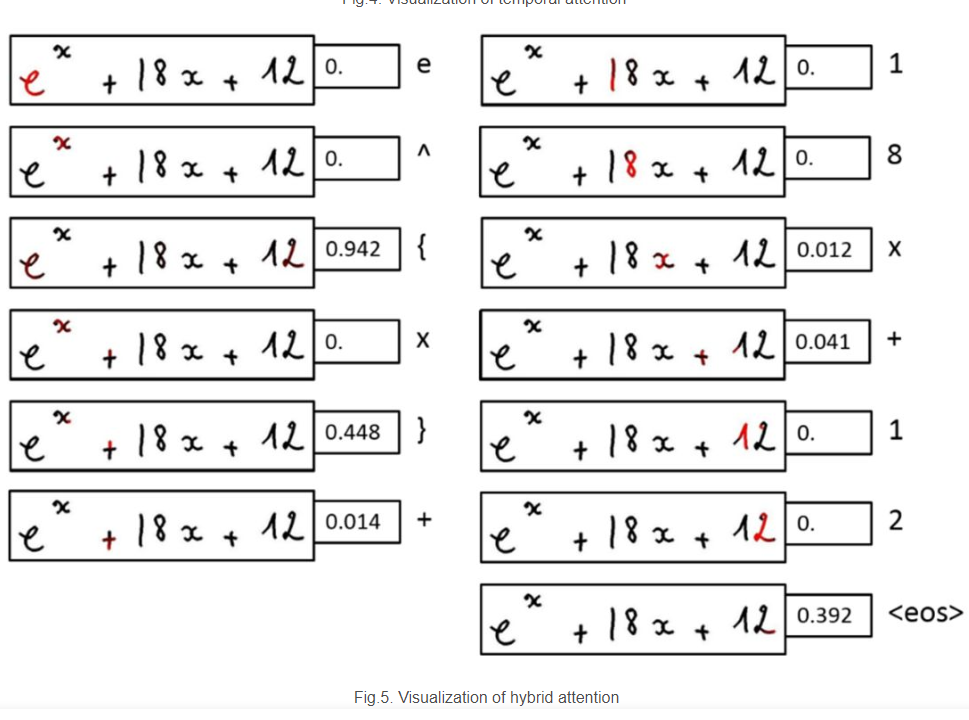 Fig.4. Visualization of temporal attention
e^x + 18x + 12 0. e
e^x + 18x + 12 0. ^
e^x + 18x + 12 0.942 {
e^x + 18x + 12 0. x
e^x + 18x + 12 0.448 }
e^x + 18x + 12 0.014 +
e^x + 18x + 12 0. 1
e^x + 18x + 12 0. 8
e^x + 18x + 12 0.012 x
e^x + 18x + 12 0.041 +
e^x + 18x + 12 0. 1
e^x + 18x + 12 0. 2
e^x + 18x + 12 0.392 <eos>
Fig.5. Visualization of hybrid attention